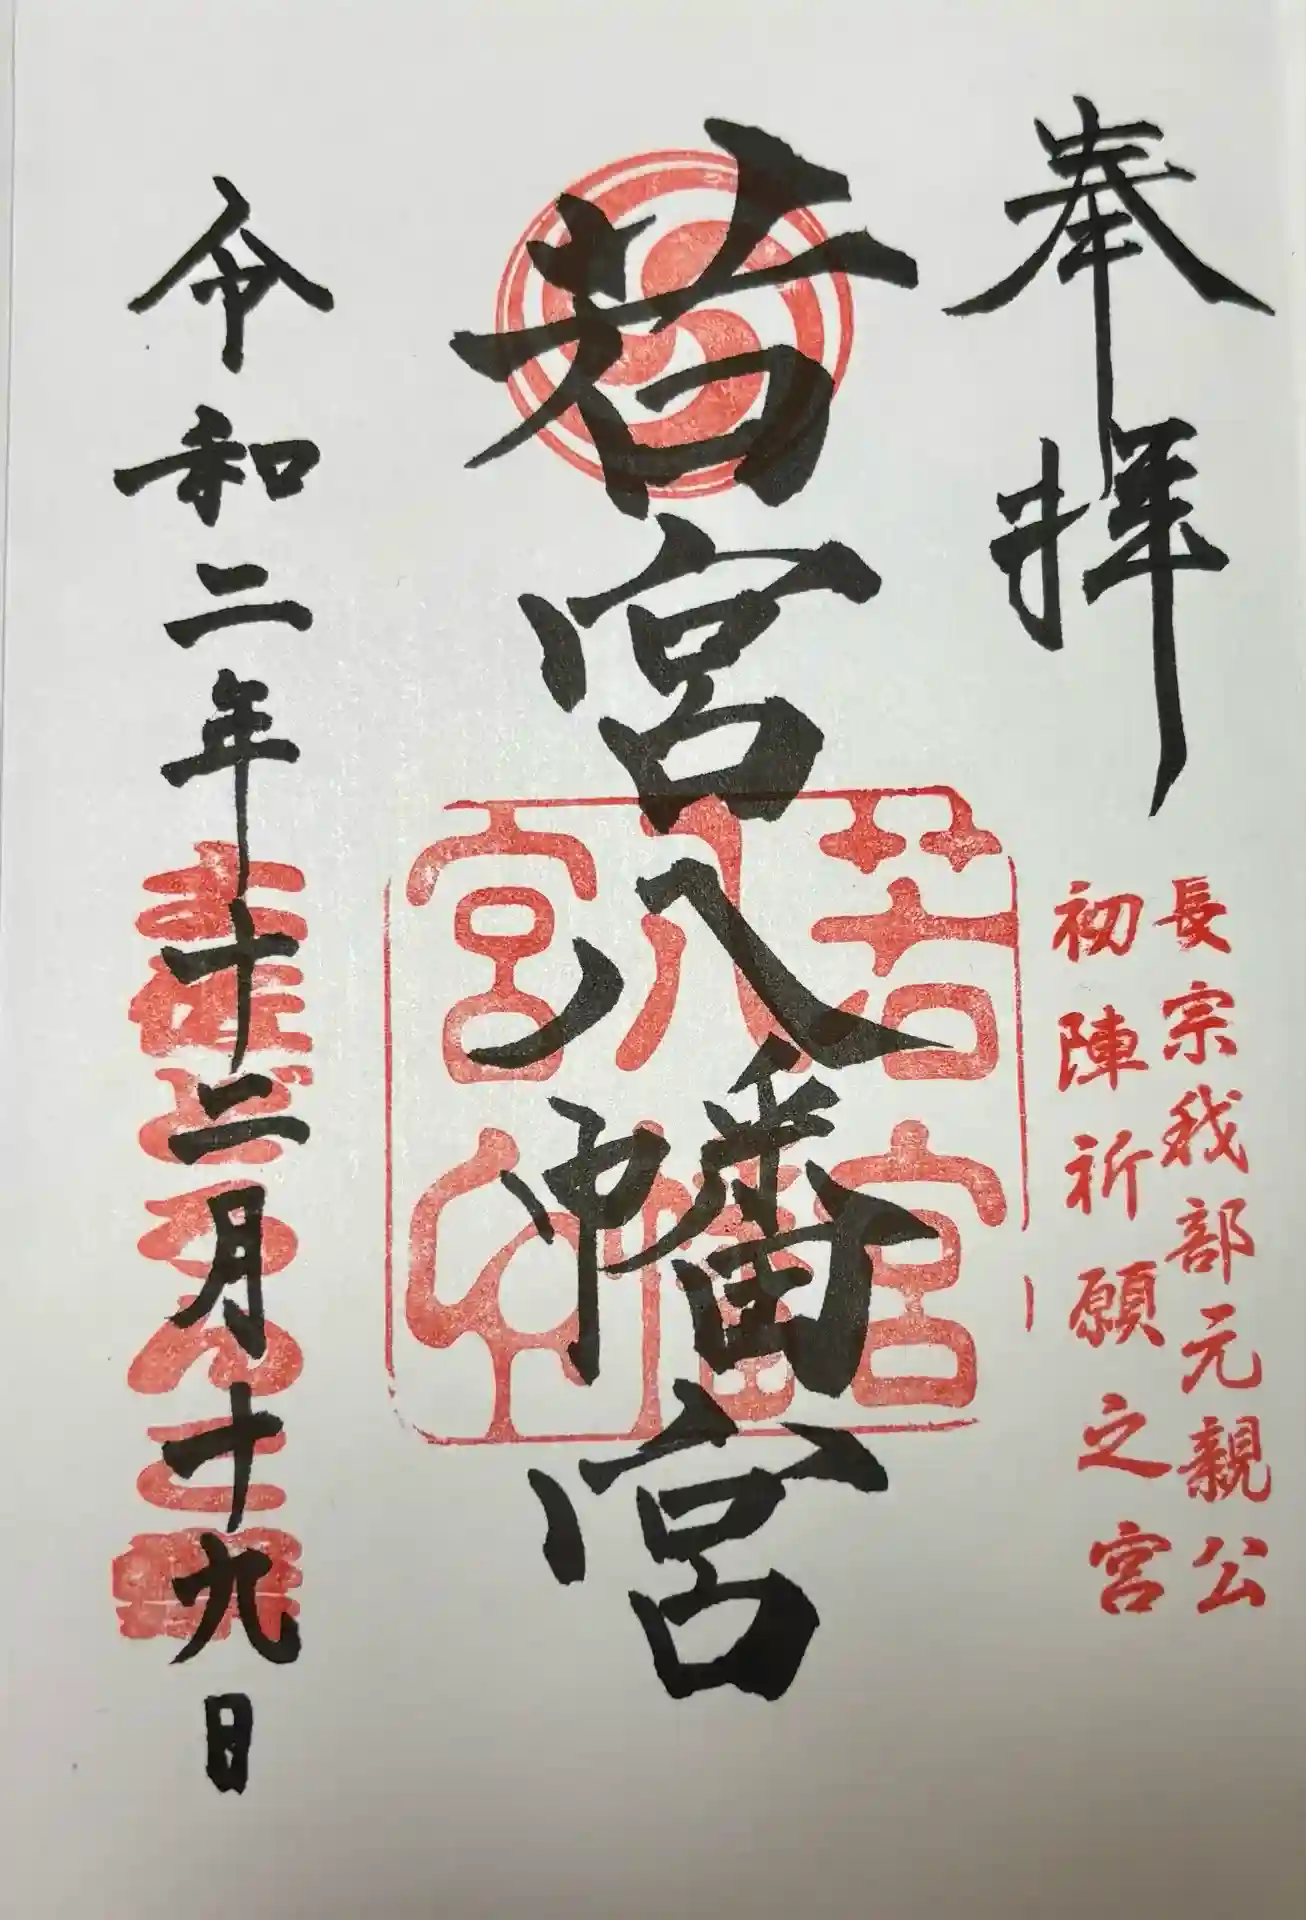 奉拝
長宗我部元親公
初陣祈願之宮
若宮八幡宮
若宮
八幡
宮印
令和二年十二月十九日